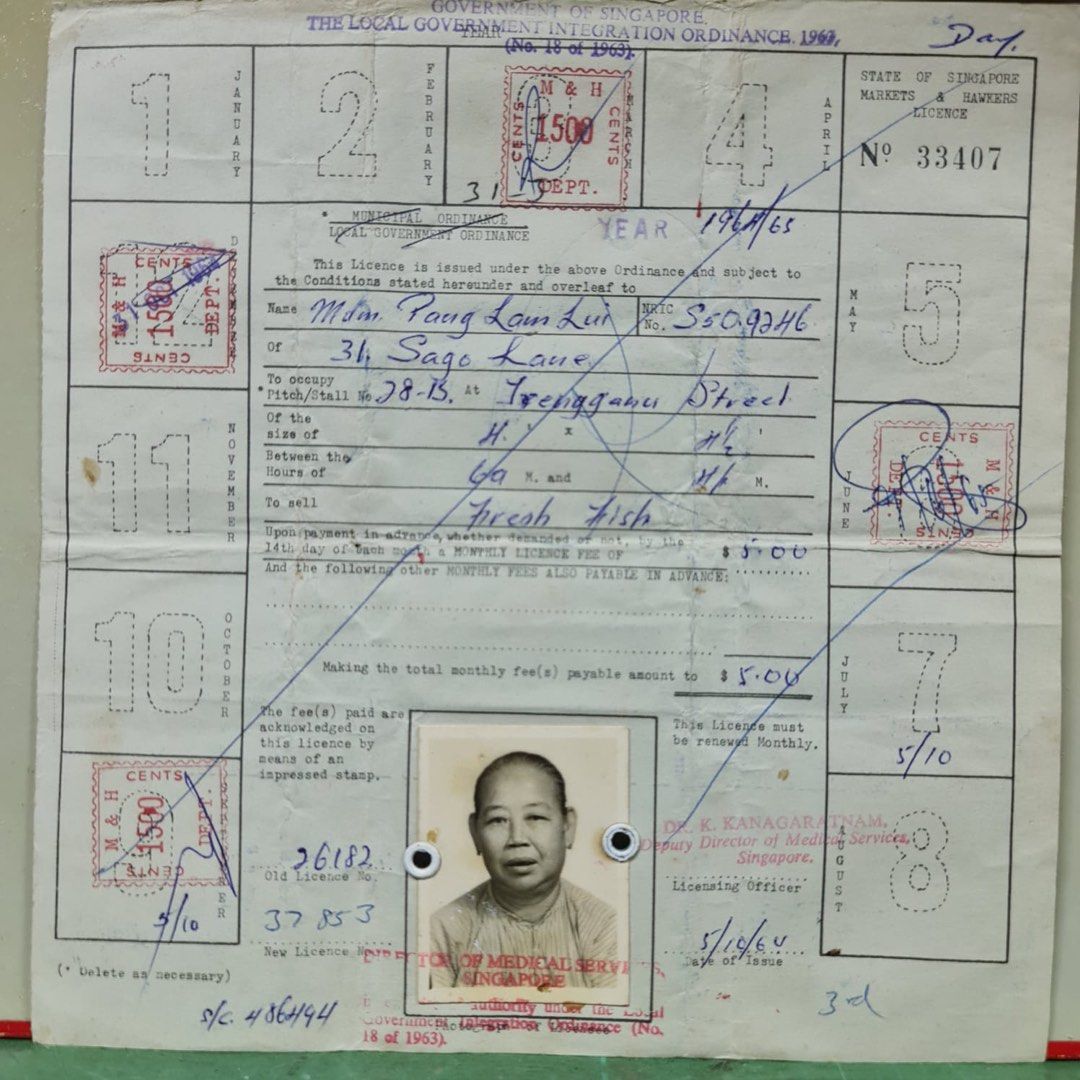 GOVERNMENT OF SINGAPORE.
THE LOCAL GOVERNMENT INTEGRATION ORDINANCE. 1963,
(No. 18 of 1963).
YEAR
Day.
1
JANUARY
2
FEBRUARY
M & H
CENTS 1500 CENTS
DEPT.
MARCH
31-3
4
APRIL
STATE OF SINGAPORE
MARKETS & HAWKERS
LICENCE
Nº 33407
* MUNICIPAL ORDINANCE
LOCAL GOVERNMENT ORDINANCE
YEAR 1964/65
This Licence is issued under the above Ordinance and subject to
the Conditions stated hereunder and overleaf to
Name Mdm. Pang Lam Lui NRIC No. S509246
Of 31, Sago Lane
* To occupy
Pitch/Stall No. 28-B. At Trengganu Street
Of the
size of 4 ' x 4½ '
Between the
Hours of 6a M. and M.
To sell Fresh Fish
Upon payment in advance, whether demanded or not, by the
14th day of each month a MONTHLY LICENCE FEE OF $ 5.00
And the following other MONTHLY FEES ALSO PAYABLE IN ADVANCE:
Making the total monthly fee(s) payable amount to $ 5.00
12
CENTS
M & H 1500 DEPT.
CENTS
5
MAY
11
NOVEMBER
CENTS
DEPT. 1500 M & H
JUNE
10
OCTOBER
7
JULY
5/10
The fee(s) paid are
acknowledged on
this licence by
means of an
impressed stamp.
This Licence must
be renewed Monthly.
CENTS
M & H 1500 DEPT.
CENTS
9
5/10
8
AUGUST
26182
Old Licence No.
37853
New Licence No.
DR. K. KANAGARATNAM,
Deputy Director of Medical Services,
Singapore.
Licensing Officer
5/10/64
Date of Issue
DIRECTOR OF MEDICAL SERVICES,
SINGAPORE
Authority under the Local
Government Integration Ordinance (No.
18 of 1963).
Photograph of Licensee
(* Delete as necessary)
S/C. 486494
3rd